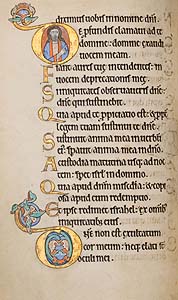 diximus vobis in nomine dñi.
De profundis clamavi ad te
domine: domine exaudi
vocem meam.
Fiant aures tue intendentes: in
vocem deprecationis mee.
Si iniquitates observaveris dñe:
dñe quis sustinebit.
Quia apud te propitiatio est: &
legem tuam sustinui te dñe.
Sustinuit anima mea in verbo
eius: speravit anima mea in dño.
A custodia matutina usq; ad noc
tem: speret isrł in domino.
Quia apud dñm misc̃dia: & copi
osa apud eum redemptio.
Et ipse redimet israhel: ex omnib;
iniquitatibus eius.
Dñe non est exaltatum
cor meum: neq; elati sunt
oculi mei.